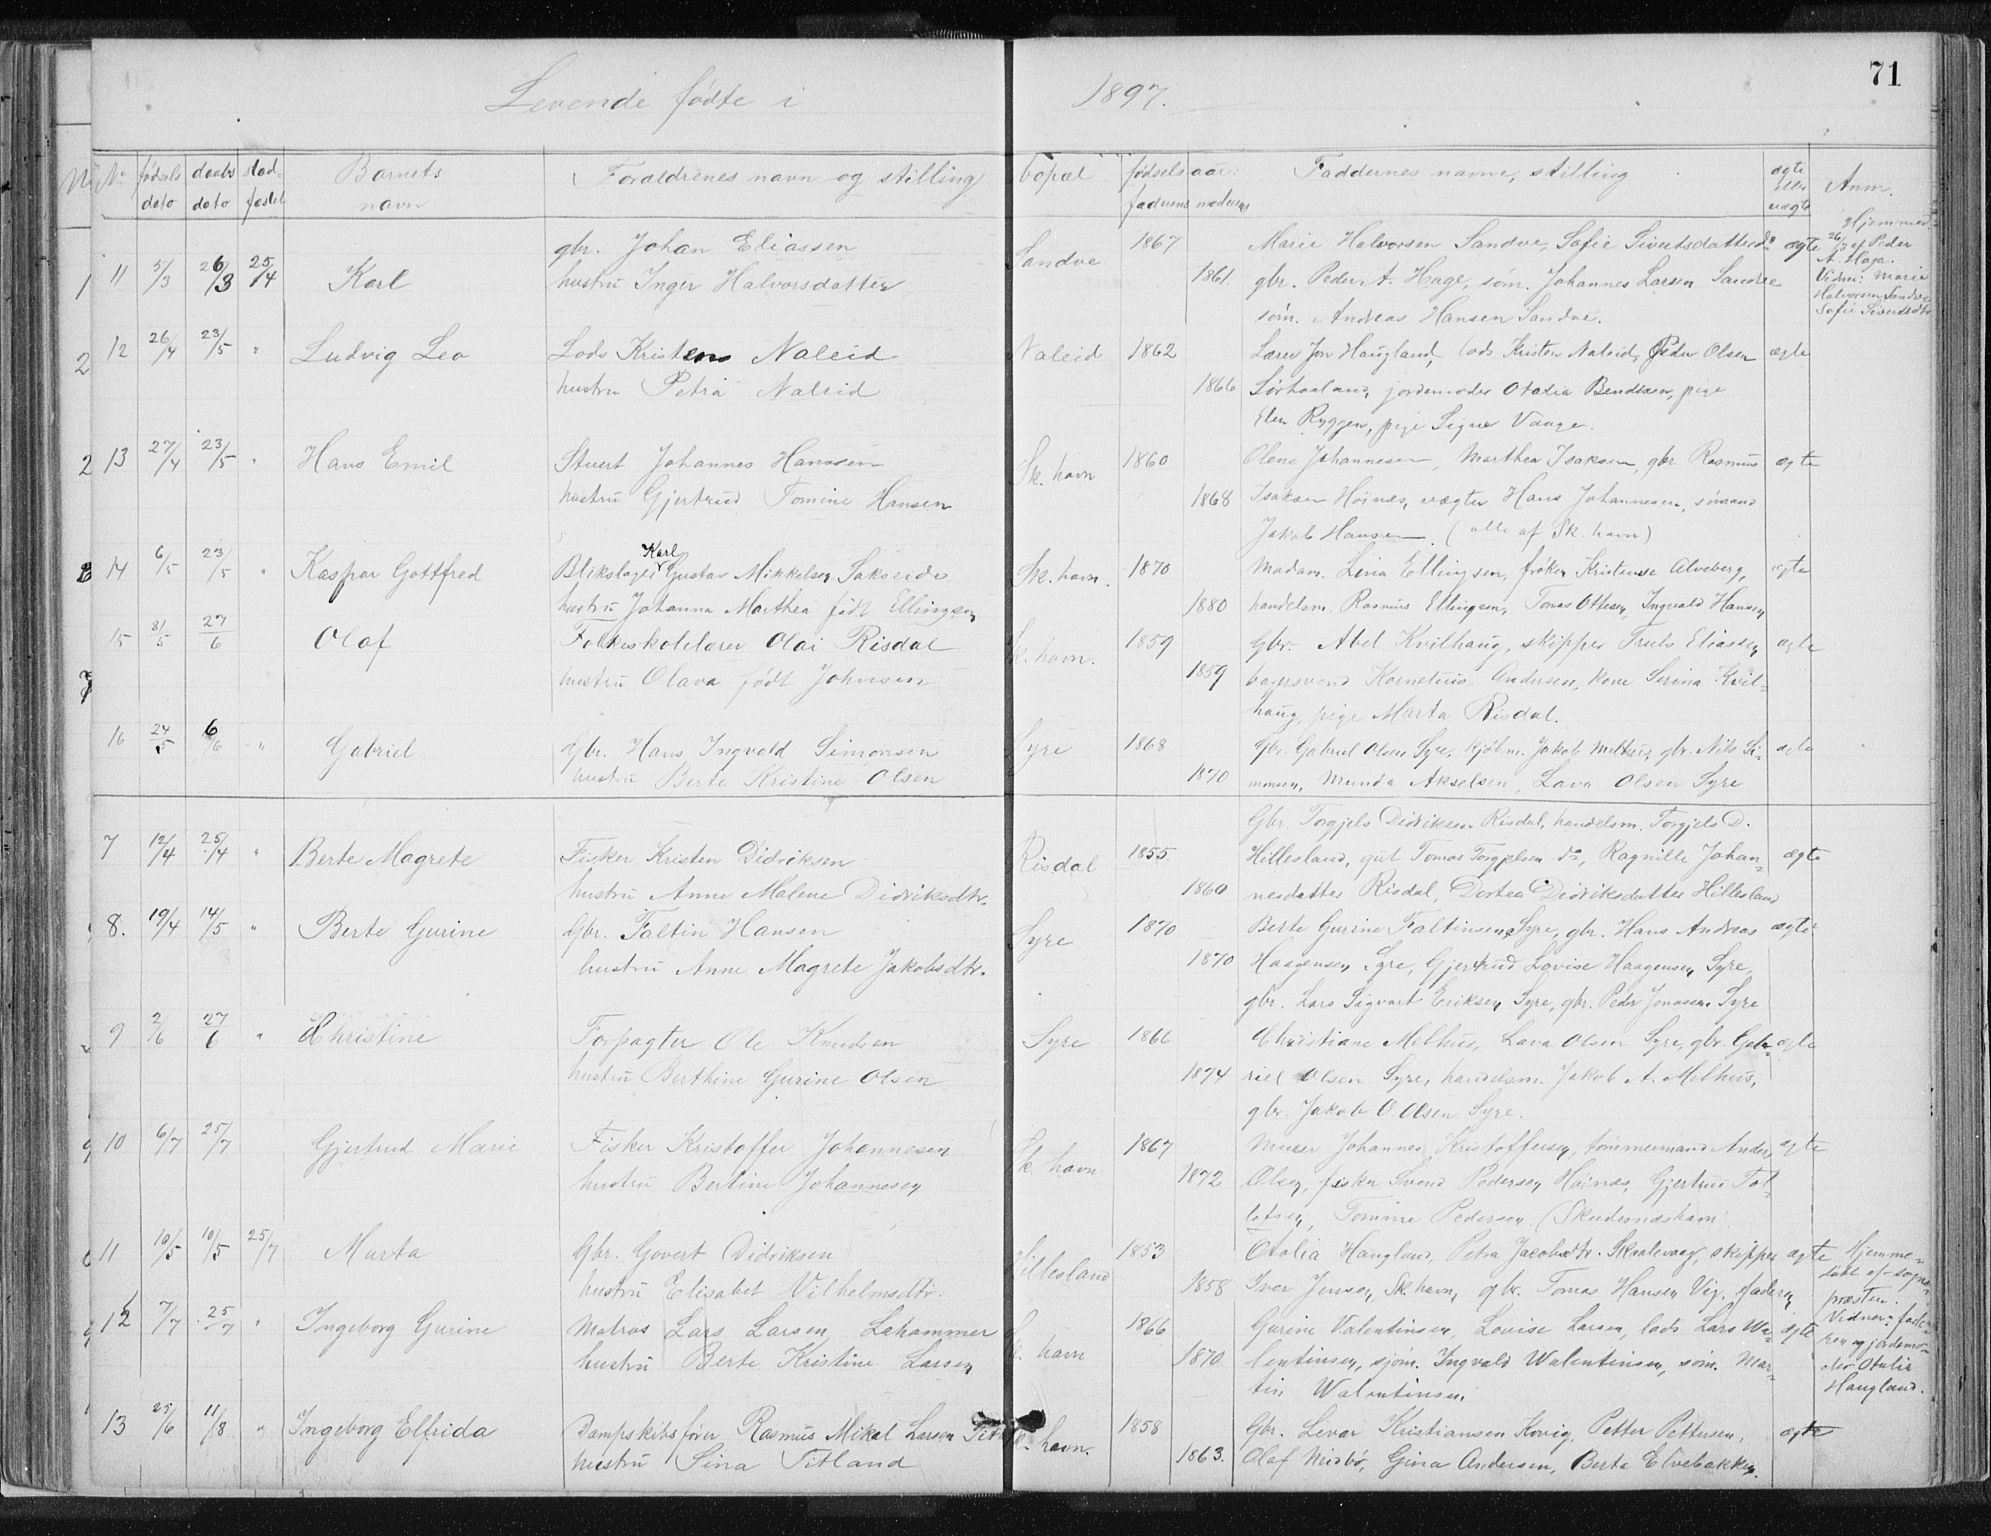 71
Levende fødte i 1897.
No fødsels dato daabs dato stad-fæstet Barnets navn Forældrenes navn og stilling bopæl fødselsaar: faderens moderens Faddernes navne, stilling ægte eller uægte Anm.
gbr. Johan Eliassen 1867 Marie Halvorsen Sandve, Sofie Sivertsdatter do ægte Hjemmed.
11 5/3 26/3 25/4 Karl hustru Inger Halvorsdatter Sandve 1861. gbr. Peder A. Hage, søm. Johannes Larsen Sandve 26/3 af Peder A. Haga.
søm. Andreas Hansen Sandve. Vidner: Marie Halvorsen Sandve Sofie Sivertsdtr
12 26/4 23/5 " Ludvig Leo Lods Kristen Naleid Naleid 1862 Lærer Jon Haugland, lods Kristen Naleid, Peder Olsen ægte
hustru Petra Naleid 1866 Sørhaaland, jordemoder Otalia Bendixen, pige
Elen Ryggen, pige Signe Vaage.
13 27/4 23/5 " Hans Emil Stuert Johannes Hanssen Sk. havn 1860 Olene Johannesen, Marthea Isaksen, gbr Rasmus ægte
hustru Gjertrud Tomine Hansen 1868 Isaksen Høinæs, vægter Hans Johannesen, sømand
Jakob Hansen. (alle af Sk. havn)
14 6/5 23/5 " Kaspar Gottfred Blikslager Karl Gustav Mikkelsen Sakseide Sk. havn. 1870 Madam. Lina Ellingsen, frøken Kristense Alveberg, ægte
hustru Johanna Marthea født Ellingsen 1880 handelsm. Rasmus Ellingsen, Tomas Ottesen, Ingvald Hansen
15 31/5 27/6 Olaf Folkeskolelærer Olai Risdal Sk. havn. 1859 Gbr. Abel Kvilhaug, skipper Truls Eliassen ægte
hustru Olava født Johnsen 1859 bagersvend Kornelius Andersen, kone Serina Kvil-
haug, pige Marta Risdal.
16 24/5 6/6 " Gabriel Gbr. Hans Ingvald Simonsen Syre 1868 Gbr. Gabriel Olsen Syre, kjøbm. Jakob Melhus, gbr. Nils Si- ægte
hustru Berte Kristine Olsen 1870 monsen, Munda Akselsen, Lava Olsen Syre
Gbr. Torgjels Didriksen Risdal, handelsm. Torgjels D.
7 12/4 25/4 " Berte Magrete Fisker Kristen Didriksen Risdal 1855. Hillesland, gut Tomas Torgjelsen do, Ragnille Johan- ægte
hustru Anne Malene Didriksdtr. 1860 nesdatter Risdal, Dortea Didriksdatter Hillesland
8. 19/4 14/5 " Berte Gurine Gbr. Faltin Hansen Syre 1870 Berte Gurine Faltinsen Syre, gbr. Hans Andreas ægte
hustru Anne Magrete Jakobsdtr. 1870 Haagensen Syre, Gjertrud Lovise Haagensen Syre,
gbr. Lars Sigvart Eriksen Syre, gbr. Peder Jonassen Syre
9 2/6 27/6 " Christine Forpagter Ole Knudsen Syre 1866 Christiane Melhus, Lava Olsen Syre, gbr. Gab- ægte
hustru Berthine Gurine Olsen 1874 riel Olsen Syre, handelsm. Jakob A. Melhus,
gbr. Jakob O Olsen Syre.
10 6/7 25/7 Gjertrud Marie Fisker Kristoffer Johannesen Sk. havn 1867 Murer Johannes Kristoffersen, tømmermand Anders ægte
hustru Bertine Johannesen 1872 Olsen, fisker Svend Pedersen Høinæs, Gjertrud Tol-
lefsen, Tomine Pedersen (Skudesneshavn)
11 10/5 10/5 25/7 Marta Gbr. Govert Didriksen Hillesland 1853 Otalia Haugland, Petra Jacobsdtr. Skaalevaag, skipper ægte Hjemme-
hustru Elisabet Vilhelmsdtr. 1858 Iver Jensen, Sk. havn, gbr. Tomas Hansen Vig, faderen døbt af sogne-præsten.
12 7/7 25/7 " Ingeborg Gurine Matros Lars Larsen Lahammer Sk. havn 1866 Gurine Valentinsen, Lovise Larsen, lods Lars Wa- ægte Vidner: fade-
hustru Berte Kristine Larsen 1870 lentinsen, sjøm. Ingvald Walentinsen, søm. Mar- ren og jordemo-der Otalia
tin Walentinsen Haugland.
13 25/6 11/8 " Ingeborg Elfrida Dampskibsfører Rasmus Mikal Larsen Sk. havn. 1858 Gbr. Levar Kristiansen Kovig, Petter Pettersen, ægte
hustru Sina Titland 1863. Olaf Misbø, Gina Andersen, Berta Elvebakken.